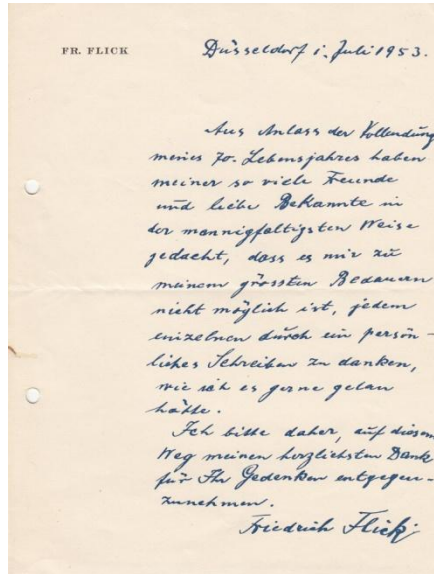 FR. FLICK
Düsseldorf i. Juli 1953.
Aus Anlass der Vollendung
meines 70. Lebensjahres haben
meiner so viele Freunde
und liebe Bekannte in
der mannigfaltigsten Weise
gedacht, dass es mir zu
meinem grössten Bedauern
nicht möglich ist, jedem
einzelnen durch ein persön-
liches Schreiben zu danken,
wie ich es gerne getan
hätte.
Ich bitte daher, auf diesem
Weg meinen herzlichsten Dank
für Ihr Gedenken entgegen-
zunehmen.
Friedrich Flick